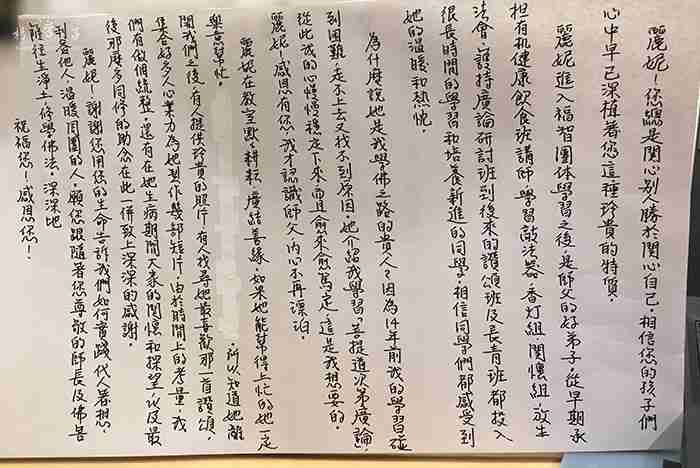 麗妮!您總是関心別人勝於関心自己,相信您的孩子們
心中早已深植著您這種珍貴的特質.
麗妮進入福智團体學習之後,是師父的好弟子,從早期承
担有机健康飲食班講師、學習敲法器、香灯組、関懷組、放生
法會、護持廣論研討班到後來的讚頌班及長青班都投入
很長時間的學習和培養新進的同學,相信同學們都感受到
她的溫暖和熱忱.
為什麼說她是我學佛之路的貴人?因為14年前我的學習碰
到困難,走不上去又找不到原因,她介紹我學習「菩提道次第廣論」
從此我的心慢慢穩下來,而這愈來愈篤定這是我想要的.
麗妮!感恩有您,我才認識師父,內心不再漂泊.
麗妮在教室默默耕耘,廣結善緣,如果她能幫得上忙的她一定
樂意幫忙. ,所以知道她離
開我們之後,有人提供珍貴的照片,有人找尋她最喜歡那一首讚頌,
集合好多人心業力為她製作幾部短片,由於時間上的考量,我
們有做個統整,還有在她生病期間大家的関懷和探望以及最
後那麼多同修的助念在此一併致上深深的感謝.
麗妮!謝謝您用您的生命告訴我們如何實踐代人著想、
利益他人,溫暖周圍的人,願您跟隨著您尊敬的師長及佛菩
薩往生淨土修學佛法.深深地
祝福您!感恩您!